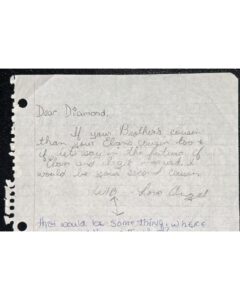 Dear Diamond,
If your Brother's cousin
than your Clan's cousin too &
if lets saying the future if
Clan and Angel married, I
would be your second cousin
Love Angel
this would be something, where